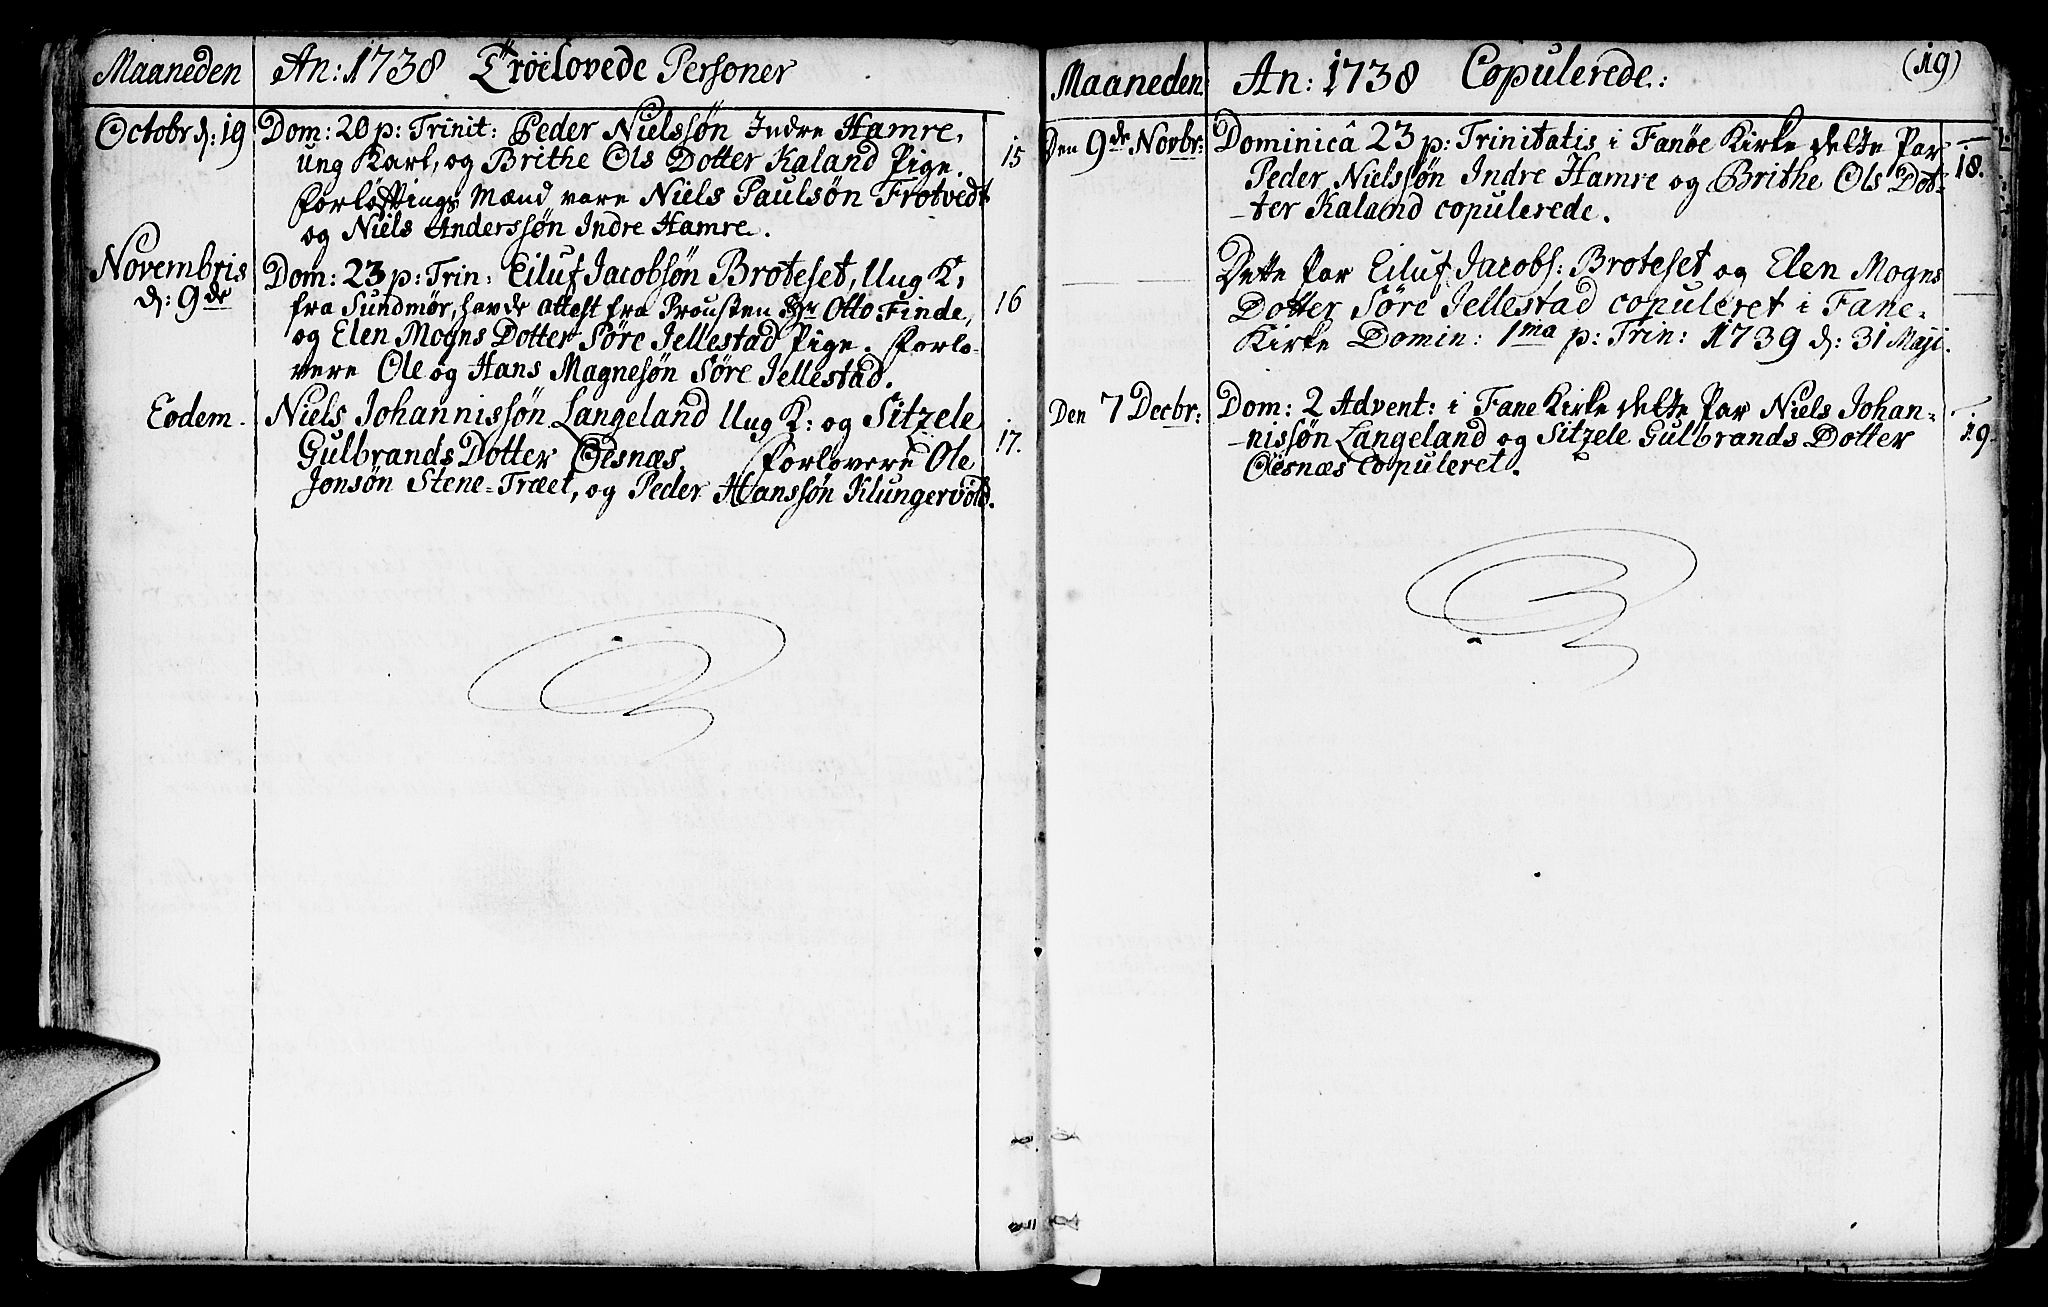 Maaneden An: 1738 Troelovede Personer
Octobr d: 19 Dom: 20 p: Trinit: Peder Nielssøn Indre Hamre,
ung Karl, og Brithe Ols Dotter Kaland Pige. 15
Forløftings Mænd vare Niels Paulsøn Frotvedt
og Niels Anderssøn Indre Hamre.
Novembris Dom: 23 p: Trin: Eiluf Jacobsøn Broteset, Ung K:
d: 9de fra Sundmør, havde attest fra Prousten Hr Otto Finde, 16
og Elen Mogns Dotter Søre Jellestad Pige. Forlo-
vere Ole og Hans Magnesøn Søre Jellestad.
Eodem. Niels Johannissøn Langeland Ung K: og Sitzele
Gulbrands Dotter Øesnæs. Forlovere Ole 17.
Jonsøn Stene-Træet, og Peder Hanssøn Klungervold.
Maaneden An: 1738 Copulerede: (19)
Den 9de Novbr: Dominicâ 23 p: Trinitatis i Fanøe Kirke dette Par
Peder Nielssøn Indre Hamre og Brithe Ols Dot- 18.
-ter Kaland copulerede.
Dette Par Eiluf Jacobs: Broteset og Elen Mogns
Dotter Søre Jellestad copuleret i Fane-
Kirke Domin: 1ma p: Trin: 1739 d: 31 Maji.
Den 7 Decbr: Dom: 2 Advent: i Fane Kirke dette Par Niels Johan-
-nissøn Langeland og Sitzele Gulbrands Dotter 19.
Øesnæs Copuleret.